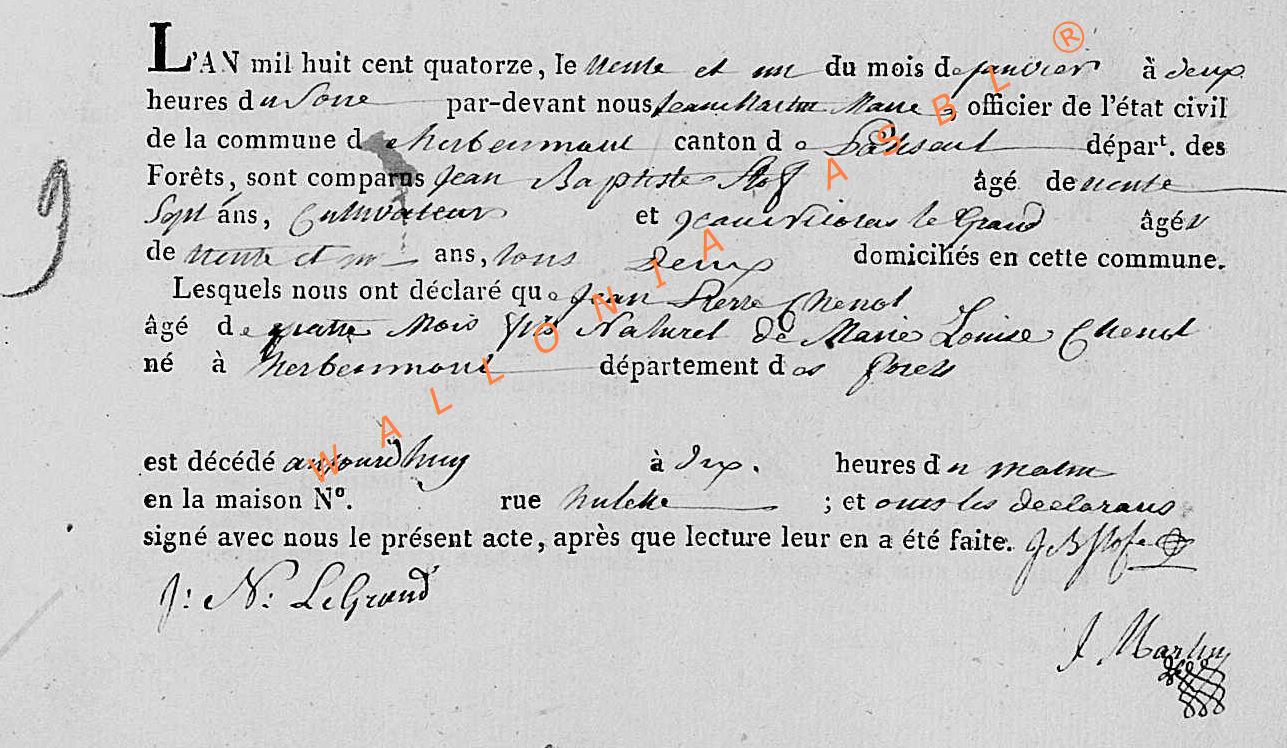 L'AN mil huit cent quatorze, le trente et un du mois de janvier à deux
heures du Soire par-devant nous Jean Martin Maire, officier de l'état civil
de la commune d herbeumont canton de Paliseul départ. des
Forêts, sont comparus Jean Baptiste Stof âgé de trente
Sept ans, Cultivateur et jean Nicolas le Grand âgé
de trente et un ans, tous deux domiciliés en cette commune.
Lesquels nous ont déclaré que Jean Pierre Chenot
âgé de quatre Mois fils Naturel de Marie Louise Chenot
né à herbeumont département des forets
est décédé aujourdhuy à dix. heures du matin
en la maison Nº. rue ; et ont les declarans
signé avec nous le présent acte, après que lecture leur en a été faite. J B Stof
J: N: LeGrand
J. Martin
9
WALLONIA ASBL ®